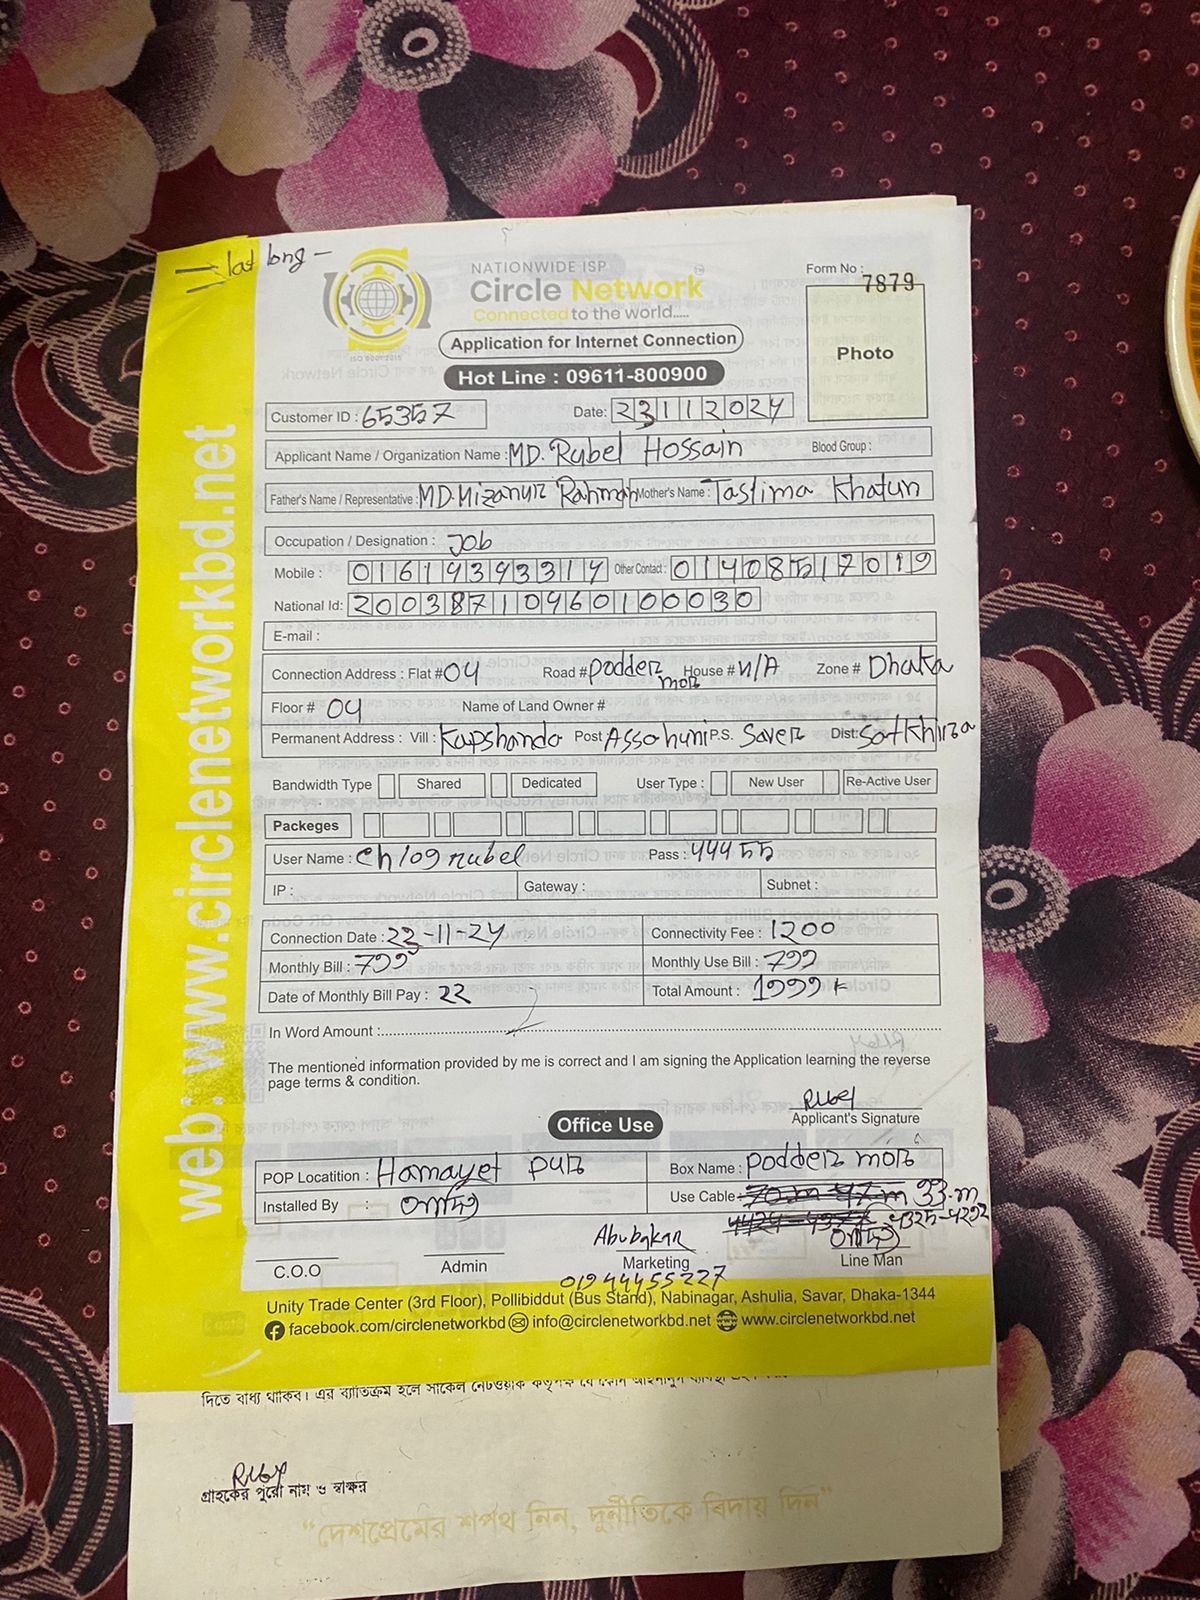 lat long -
NATIONWIDE ISP
Circle Network
Connected to the world.....
ISO 9001:2015
Form No : 7879
Application for Internet Connection
Photo
Hot Line : 09611-800900
Customer ID : 65357 Date: 23112024
Applicant Name / Organization Name : MD. Rubel Hossain Blood Group :
Father's Name / Representative : MD. Mizanur Rahman Mother's Name : Taslima Khatun
Occupation / Designation : Job
Mobile : 01614393314 Other Contact : 01408517019
National Id: 20038710460100030
E-mail :
Connection Address : Flat # 04 Road # Podder mor House # N/A Zone # Dhaka
Floor # 04 Name of Land Owner #
Permanent Address : Vill : Kapshanda Post Assahuni P.S. Saver Dist: Satkhira
Bandwidth Type Shared Dedicated User Type : New User Re-Active User
Packeges
User Name : Pass : 44455
IP : Gateway : Subnet :
Connection Date : 23-11-24 Connectivity Fee : 1200
Monthly Bill : 799 Monthly Use Bill : 799
Date of Monthly Bill Pay : 22 Total Amount : 1999
In Word Amount :
The mentioned information provided by me is correct and I am signing the Application learning the reverse
page terms & condition.
Rubel
Applicant's Signature
Office Use
POP Locatition : Hamayet pur Box Name : Podder mor
Installed By : Use Cable 33.m
4325-4292
Abubakar
C.O.O Admin Marketing Line Man
01944455227
Unity Trade Center (3rd Floor), Pollibiddut (Bus Stand), Nabinagar, Ashulia, Savar, Dhaka-1344
facebook.com/circlenetworkbd info@circlenetworkbd.net www.circlenetworkbd.net
web: www.circlenetworkbd.net
দিতে বাধ্য থাকিব। এর ব্যতিক্রম হলে সার্কেল নেটওয়ার্ক
Rubel
গ্রাহকের পুরো নাম ও স্বাক্ষর
“দেশপ্রেমের শপথ নিন, দুর্নীতিকে বিদায় দিন”